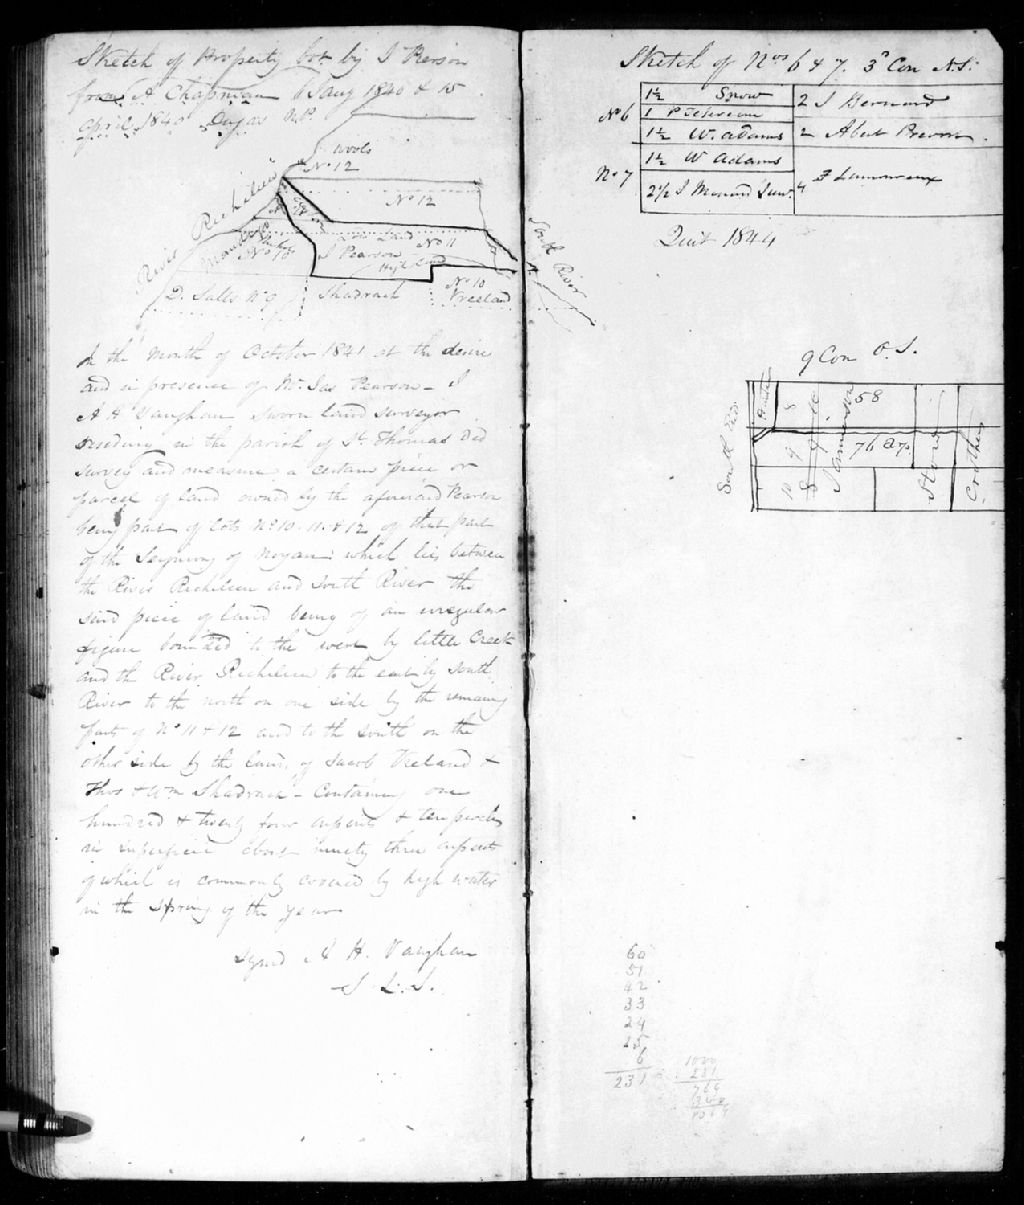 Sketch of Property bot by J Pierson
from A. Chapman 6 Aug 1840 & 15
April 1840 Dugas N.P.
J. Woods
No 12
No 12
River Richilieu
No 11
J Pearson
High Land
No 10
No 10
Vreeland
D. Salls No 9
Shadrack
South River
In the Month of October 1841 at the desire
and in presence of Mr Jas Pearson - I
A H Vaughan Sworn Land surveyor
residing in the parish of St Thomas did
survey and measure a certain piece or
parcel of land owned by the aforesaid Pearson
being part of lots No 10. 11. & 12 of that part
of the Seigniory of Noyan which lies between
the River Richilieu and South River the
said piece of land being of an irregular
figure bounded to the west by little Creek
and the River Richilieu to the east by South
River to the north on one side by the remaing
part of No 11 & 12 and to the south on the
other side by the land of Jacob Vreeland &
Thos & Wm Shadrack - Containing one
hundred & twenty four arpents & ten perches
in superficie about ninety three arpents
of which is commonly covered by high water
in the Spring of the year
Signed A H. Vaughan
S. L. S.
Sketch of Nos 6 & 7. 3d Con N.S.
No 6
1½ Snow
1 P
1½ W. Adams
2 J Bernard
2 Abut
No 7
1½ W Adams
2½ J Menard
4
1844
9 Con O. S.
58
8
9
10
76 a 7p
Hord
South
60
51
42
33
24
15
6
231
1000
231
769
300
1069